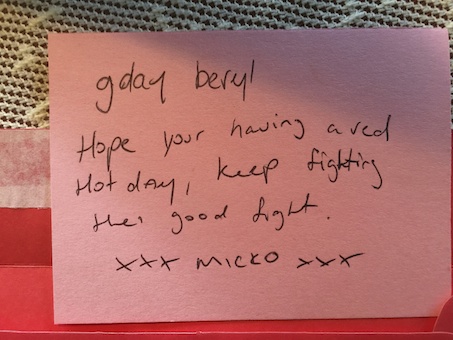 gday beryl
Hope your having a red
Hot day, keep fighting
the good fight.
xxx micko xxx